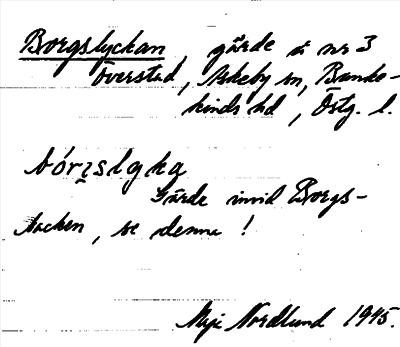 Borgslyckan, gärde å nr 3
Överstad, Askeby sn, Banke-
kinds hd, Östg. l.
bórislyka
Gärde invid Borgs-
backen, se denna!
Maja Nordlund 1945.